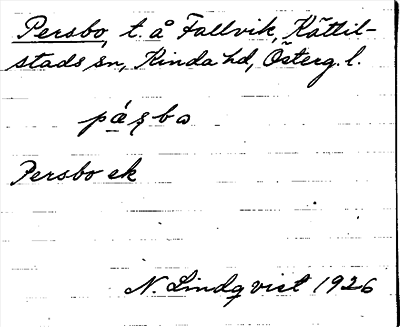 Persbo, t. å Fallvik, Kättil-
stads sn, Kinda hd, Österg. l.
pæ̀ʂbo
Persbo ek
N. Lindqvist 1926